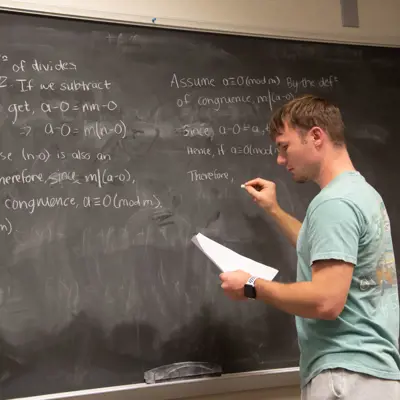 of divides
Z. If we subtract
get, a-0=mn-0.
⇒ a-0=m(n-0)
(n-0) is also an
herefore, since m|(a-0),
congruence, a≡0(mod m).
m)
Assume a≡0(mod m) By the def²
of congruence, m|(a-0)
Since, a-0=a,
Hence, if a≡0(mod m
Therefore,